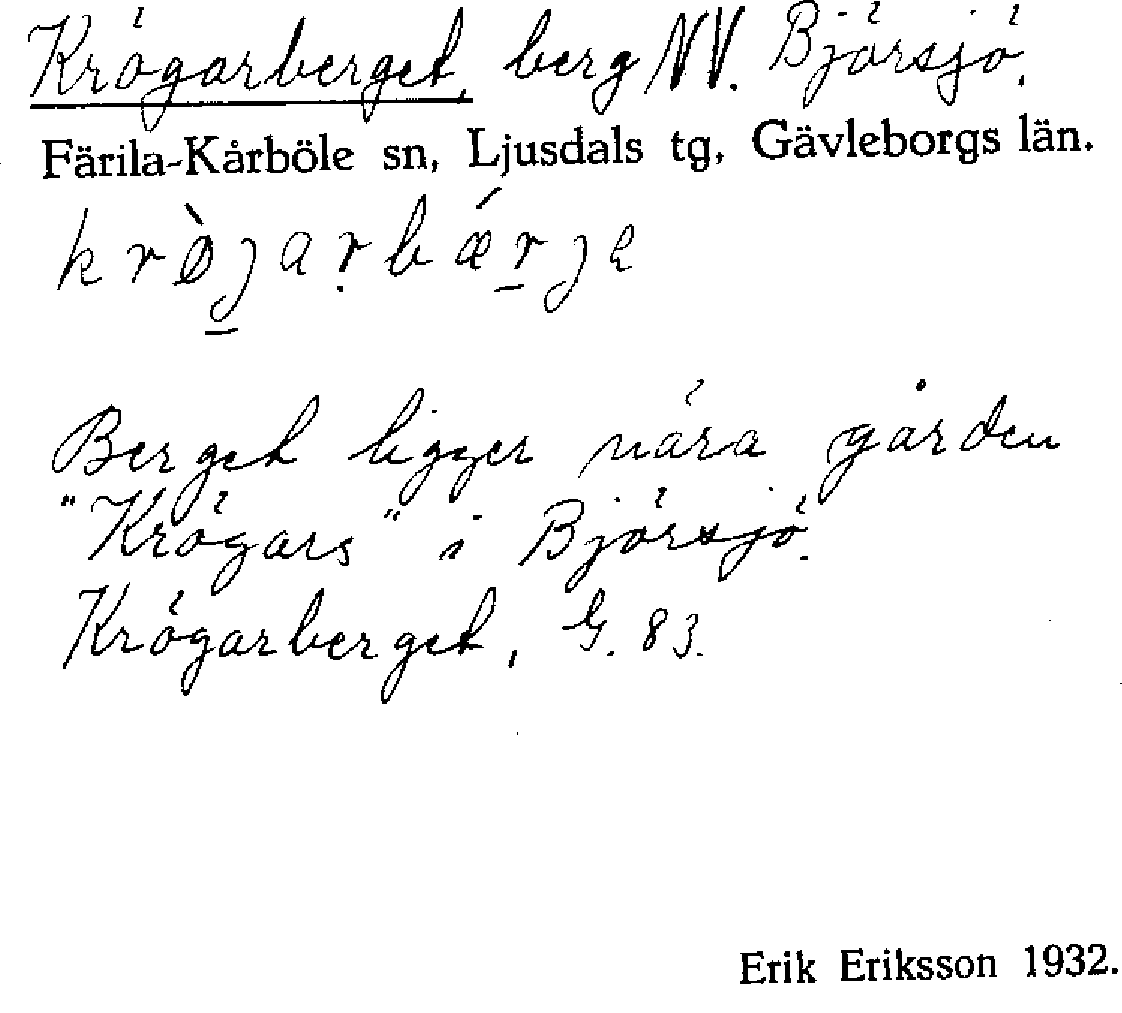 Krögarberget, berg NV. Björsjö.
Färila-Kårböle sn, Ljusdals tg, Gävleborgs län.
krø̀jarbǽrje
Berget ligger nära gården
"Krögars" i Björsjö.
Krögarberget, G. 83.
Erik Eriksson 1932.